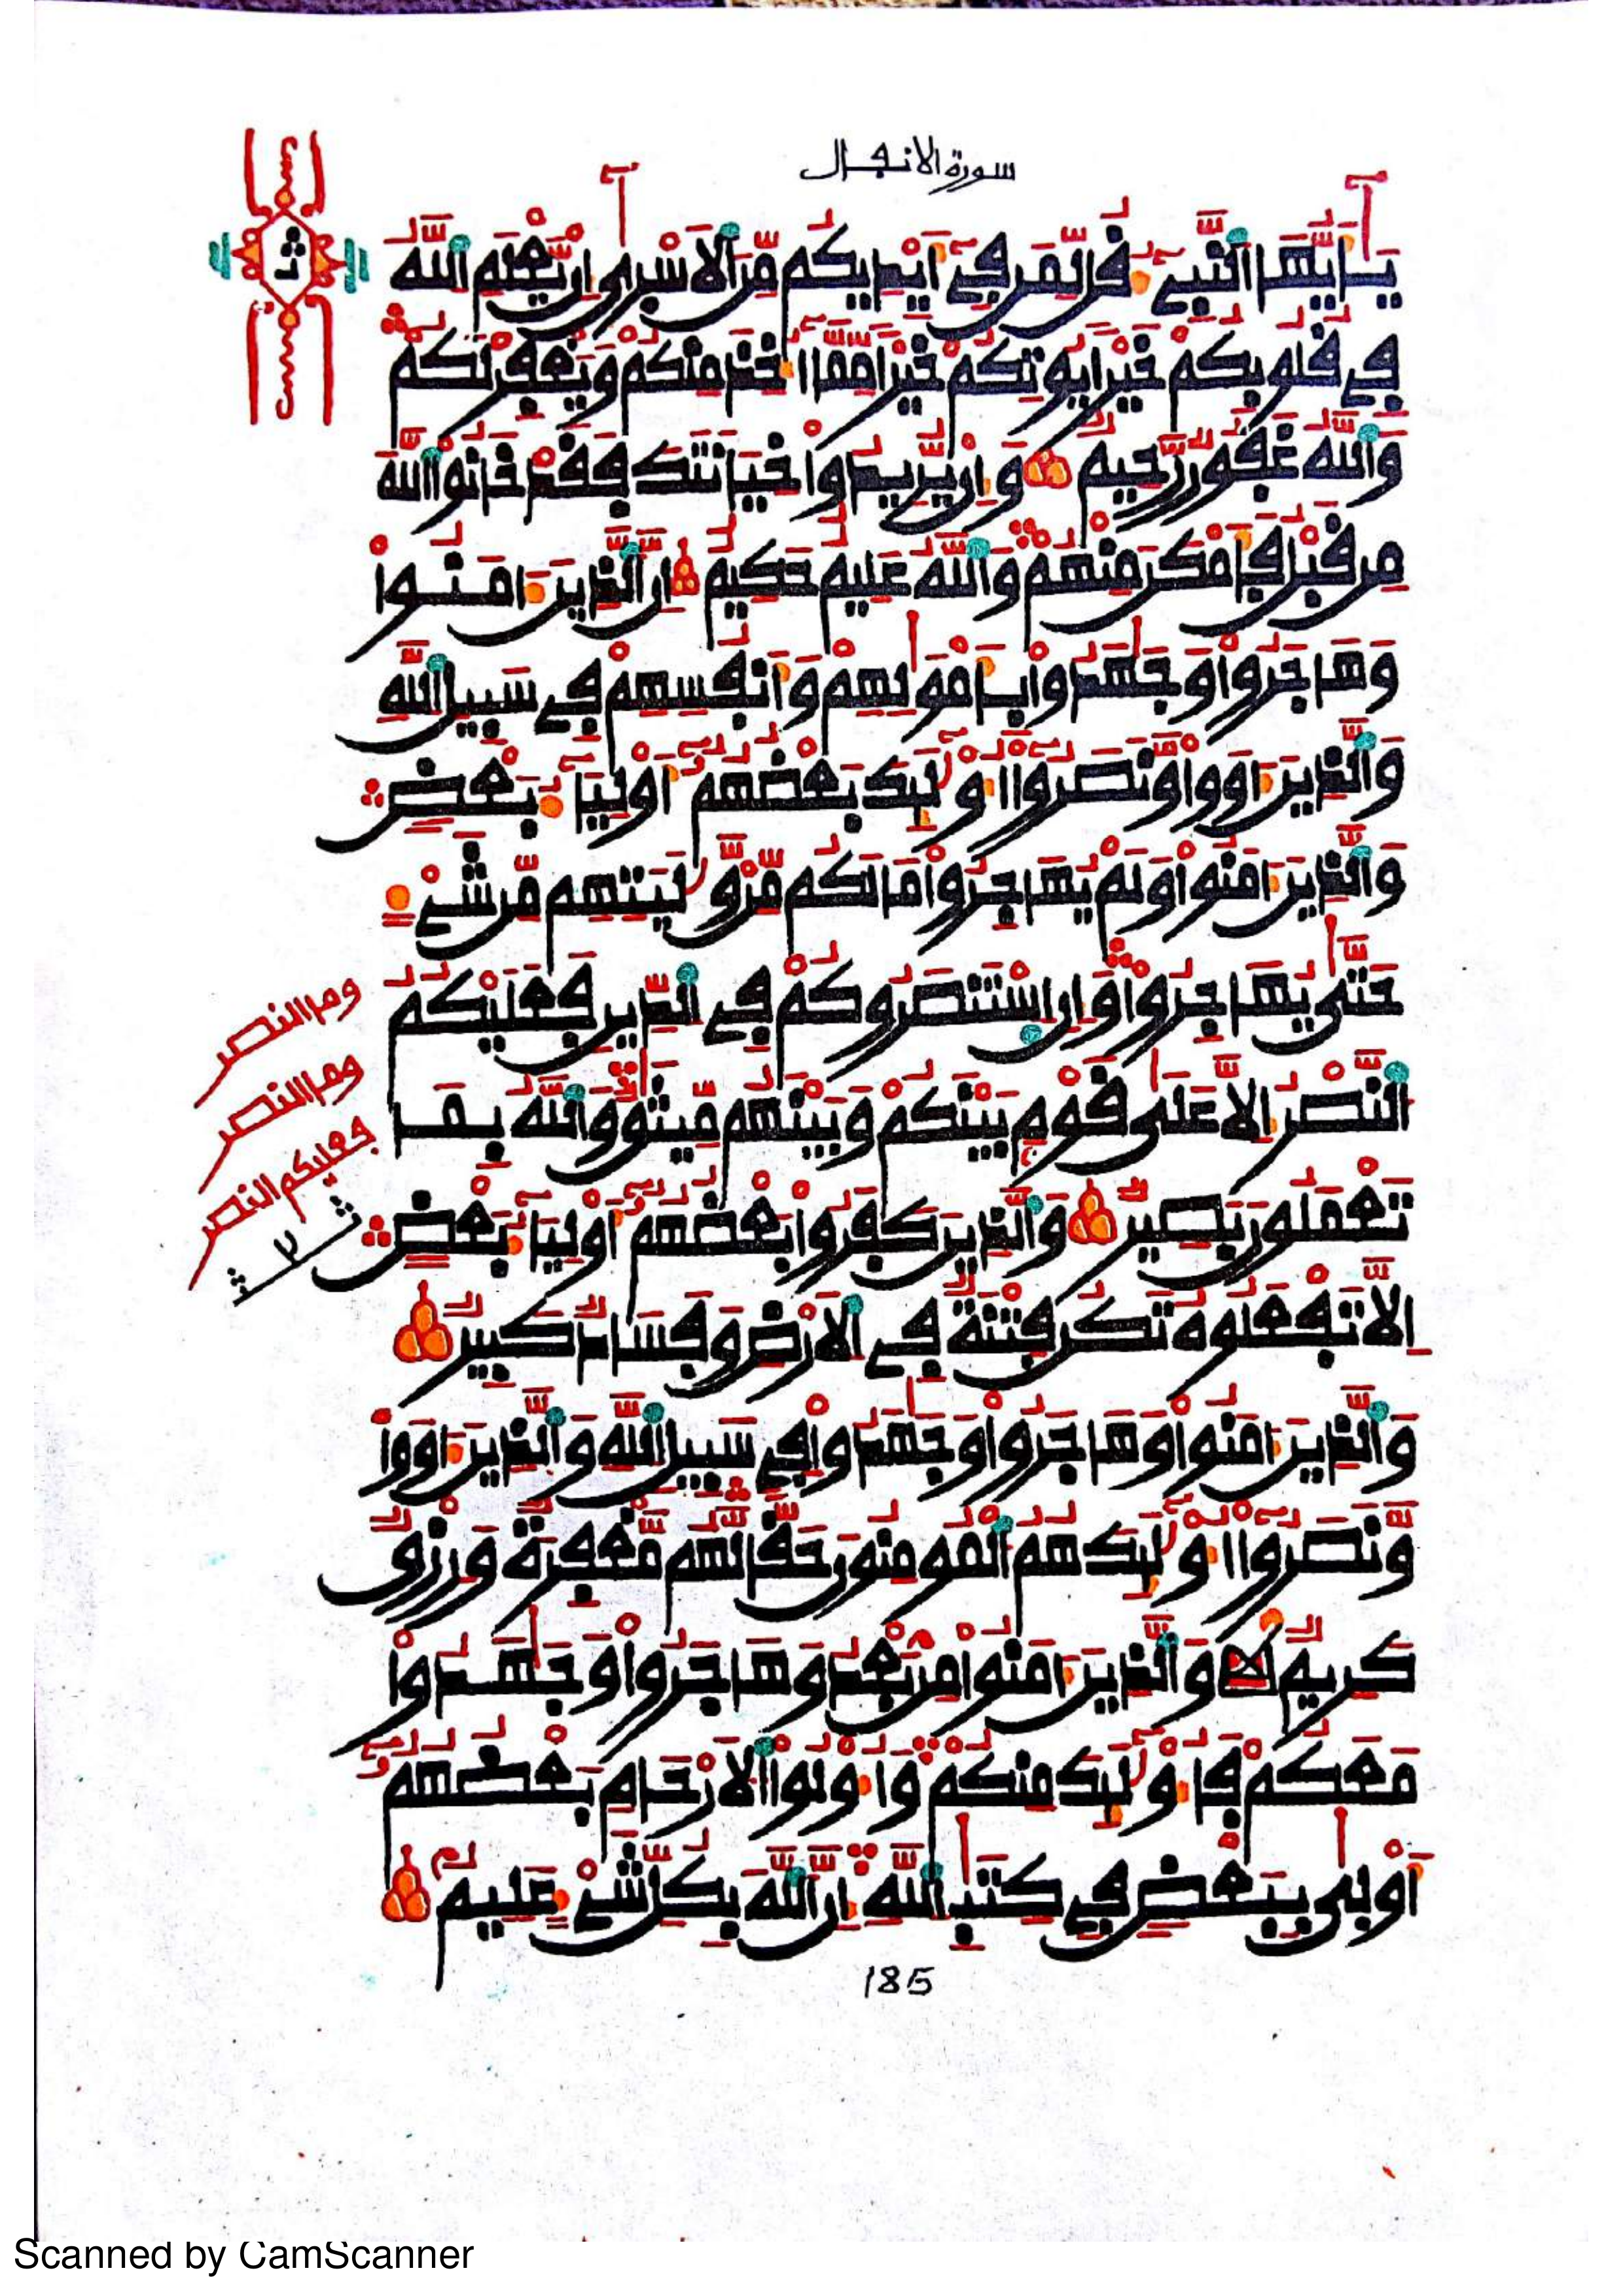 سورة الانفال
يَٰٓأَيُّهَا اَلنَّبِيٓءُ قُل لِّمَن فِيٓ أَيْدِيكُم مِّنَ اَلَاسْرٰىٓ إِنْ يَّعْلَمِ اِللَّهُ
فِي قُلُوبِكُمْ خَيْرًا يُوتِكُمْ خَيْرًا مِّمَّآ أُخِذَ مِنكُمْ وَيَغْفِرْ لَكُمْ
وَاللَّهُ غَفُورٌ رَّحِيمٌ وَإِنْ يُّرِيدُواْ خِيَانَتَكَ فَقَدْ خَانُواْ اُللَّهَ
مِن قَبْلُ فَأَمْكَنَ مِنْهُمْ وَاللَّهُ عَلِيمٌ حَكِيمٌ إِنَّ اَلذِينَ ءَامَنُواْ
وَهَاجَرُواْ وَجَٰهَدُواْ بِأَمْوَٰلِهِمْ وَأَنفُسِهِمْ فِي سَبِيلِ اِللَّهِ
وَالذِينَ ءَاوَواْ وَّنَصَرُوٓاْ أُوْلَٰٓئِكَ بَعْضُهُمُۥٓ أَوْلِيَآءُ بَعْضٍ
وَالذِينَ ءَامَنُواْ وَلَمْ يُهَاجِرُواْ مَا لَكُم مِّنْ وَّلَٰيَتِهِم مِّن شَےْءٍ
حَتَّىٰ يُهَاجِرُواْ وَإِنِ اِسْتَنصَرُوكُمْ فِي اِلدِّينِ فَعَلَيْكُمُ
اُلنَّصْرُ إِلَّا عَلَىٰ قَوْمٍ بَيْنَكُمْ وَبَيْنَهُم مِّيثَٰقٌ وَاللَّهُ بِمَا
تَعْمَلُونَ بَصِيرٌ وَالذِينَ كَفَرُواْ بَعْضُهُمُۥٓ أَوْلِيَآءُ بَعْضٍ
إِلَّا تَفْعَلُوهُ تَكُن فِتْنَةٌ فِي اِلَارْضِ وَفَسَادٌ كَبِيرٌ
وَالذِينَ ءَامَنُواْ وَهَاجَرُواْ وَجَٰهَدُواْ فِي سَبِيلِ اِللَّهِ وَالذِينَ ءَاوَواْ
وَّنَصَرُوٓاْ أُوْلَٰٓئِكَ هُمُ اُلْمُومِنُونَ حَقًّا لَّهُم مَّغْفِرَةٌ وَرِزْقٌ
كَرِيمٌ وَالذِينَ ءَامَنُواْ مِنۢ بَعْدُ وَهَاجَرُواْ وَجَٰهَدُواْ
مَعَكُمْ فَأُوْلَٰٓئِكَ مِنكُمْ وَأُوْلُواْ اُلَارْحَامِ بَعْضُهُمُۥٓ
أَوْلَىٰ بِبَعْضٍ فِي كِتَٰبِ اِللَّهِ إِنَّ اَللَّهَ بِكُلِّ شَےْءٍ عَلِيمٌ
185
وما النصر
وما النصر
فعليكم النصر
Scanned by CamScanner